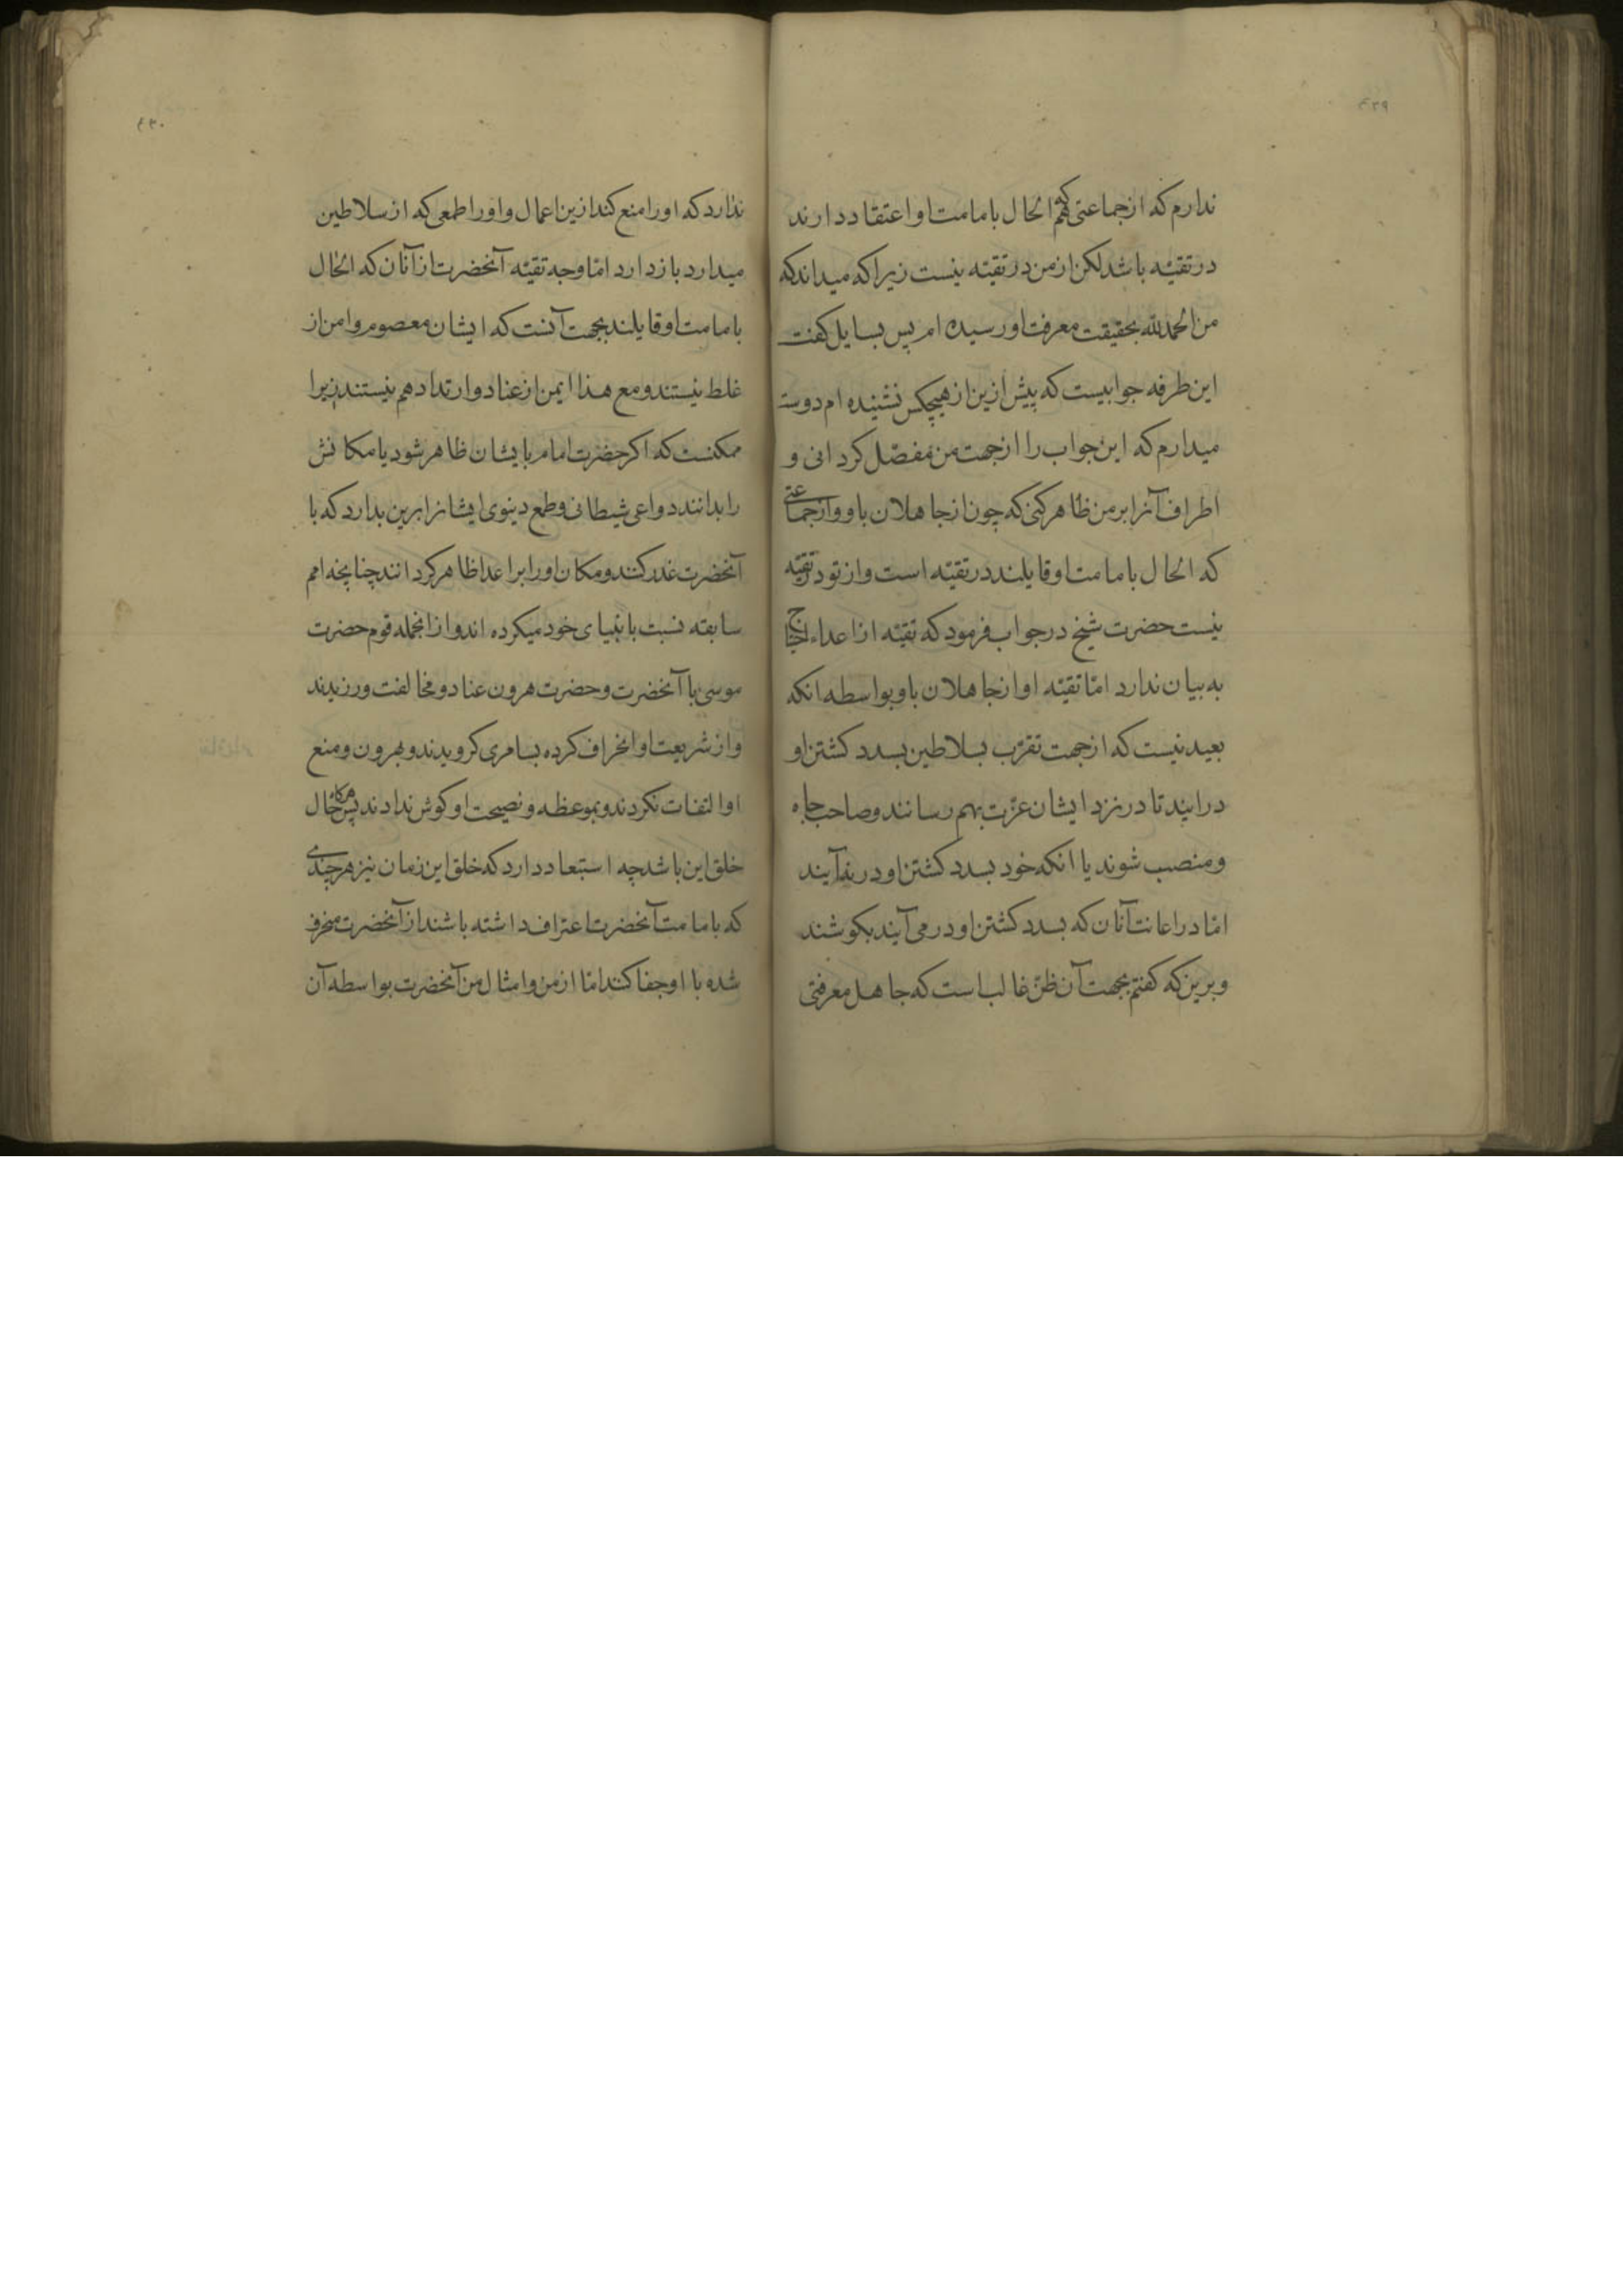 ۴۲۹
ندارم که از جماعتی که هم الحال بامامت او اعتقاد دارند
در تقیّه باشد لکن از من در تقیّه نیست زیرا که میداند که
من الحمدلله بحقیقت معرفت او رسیده ام پس سایل کفت
این طرفه جوابیست که پیش ازین از هیچکس نشنیده ام دوست
میدارم که این جواب را از جهت من مفصّل کردانی و
اطراف آنرا بر من ظاهر کنی که چون از جاهلان باو و از جماعتی
که الحال بامامت او قایلند در تقیّه است و از تو در تقیّه
نیست حضرت شیخ در جواب فرمود که تقیّه از اعداء احتیاج
به بیان ندارد امّا تقیّه او از جاهلان باو بواسطه انکه
بعید نیست که از جهت تقرّب بسلاطین بسدد کشتن او
درایند تا در نزد ایشان عزّت بهم رسانند و صاحب جاه
و منصب شوند یا انکه خود بسدد کشتن او در نیآیند
امّا در اعانت آنان که بسدد کشتن او در می آیند بکوشند
و برین که کفتم بجهت آن ظنّ غالب است که جاهل معرفتی
۴۳۰
ندارد که او را منع کند ازین اعمال و او را طمعی که از سلاطین
میدارد باز دارد امّا وجه تقیّه آنحضرت از آنان که الحال
بامامت او قایلند بجهت آنست که ایشان معصوم و امن از
غلط نیستند و مع هذا ایمن از عناد و ارتداد هم نیستند زیرا
ممکنست که اکر حضرت امام بایشان ظاهر شود یا مکانش
را بدانند دواعی شیطانی و طمع دینوی ایشانرا برین بدارد که با
آنحضرت غدر کنند و مکان او را بر اعدا ظاهر کردانند چنانچه امم
سابقه نسبت بانبیای خود میکرده اند و از انجمله قوم حضرت
موسی با آنحضرت و حضرت هرون عناد و مخالفت ورزیدند
و از شریعت او انحراف کرده بسامری کرویدند و بهرون و منع
او التفات نکردند و بموعظه و نصیحت او کوش ندادند پس هرکاه حال
خلق این باشد چه استبعاد دارد که خلق این زمان نیز هر چندی
که بامامت آنحضرت اعتراف داشته باشند از آنحضرت منحرف
شده با او جفا کنند امّا از من و امثال من آنحضرت بواسطه آن